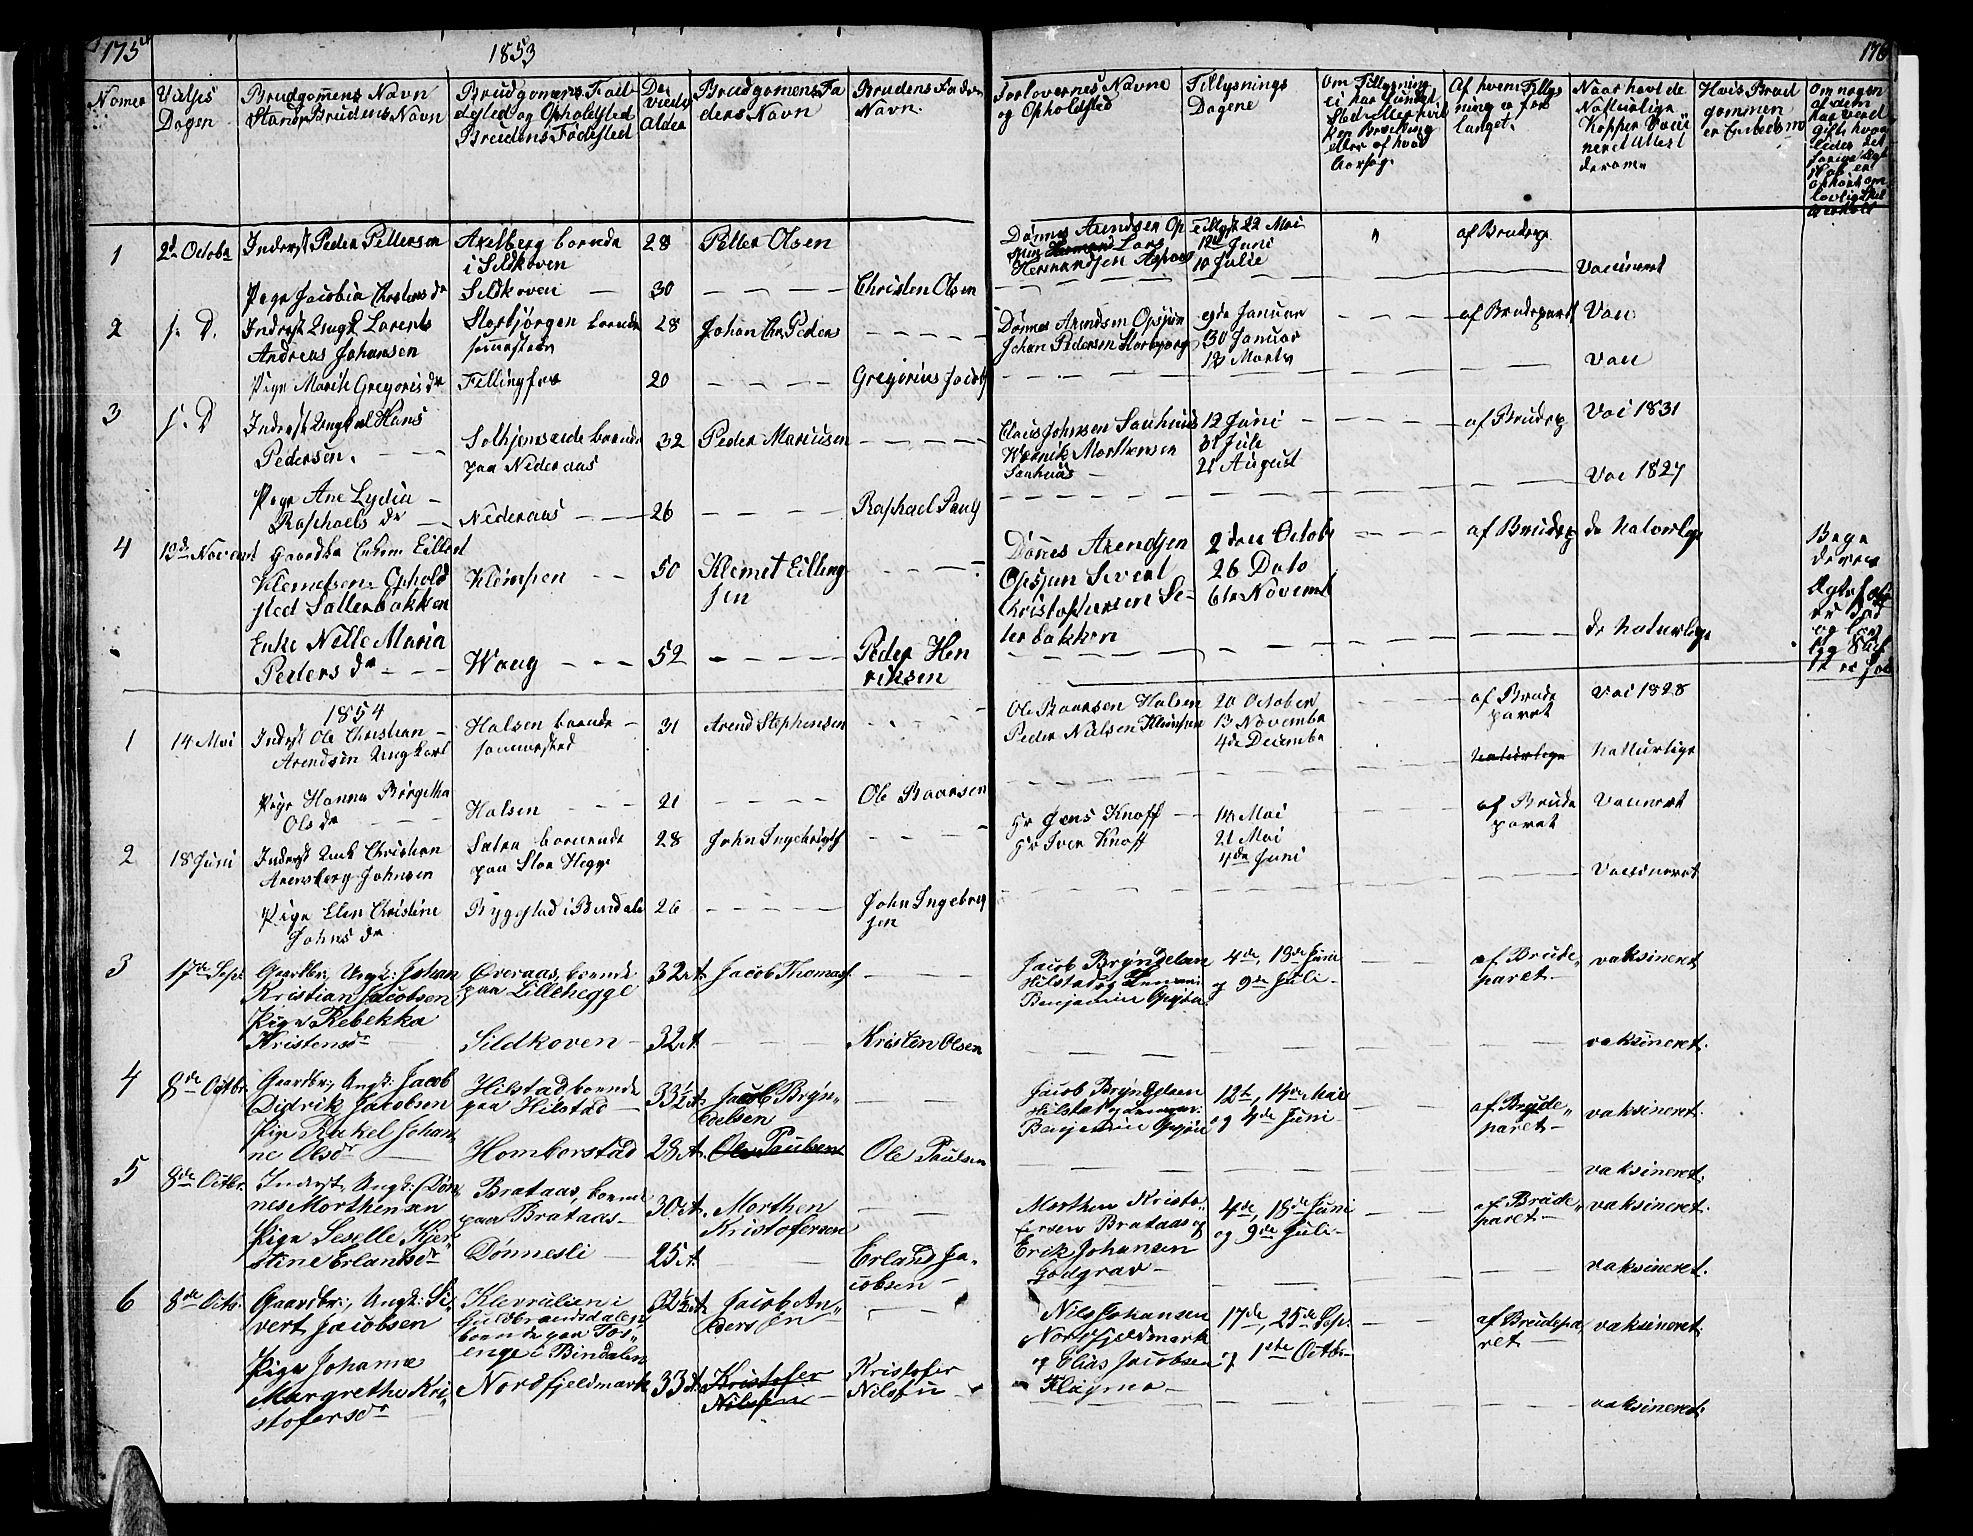 175
1853
176
Nomer
Vielses
Dagen
Brudgomens Navn
Stand Brudens Navn
Brudgomens Föd
dested og Opholdsted
Brudens Födested
Des
vieders
Alder
Brudgomens Fa
ders Navn
Brudens Faders
Navn.
Forlovernes Navne
og Opholdsted
Tillysnings
Dagene
Om Tillysning
ei har fundet
Sted
eller af hvad
Aarsag.
Af hvem Tillys
ning er for
langet.
Naar havt de
Naturlige
Kopper Vacci
neret Attest
derom.
Hvis Brud
gommen
er Enkemand
Om nogen
af dem
har været
gift
1
2d Octobr
Inderst Peder Pettersen
Axelberg boende
i Sildhoven
28
Petter Olsen
Dönnes Arendsen Op
sjön Lars
Hermandsen
Tillyst 22 Mai
12te Juni
10 Julie
"
af Brudep
Vaccineret
Pige Jacobia Christens dr
Sildhoven
30
Christen Olsen
2
s. D.
Inderst Ungk Lorents
Andreas Johansen
Storbjörgen boende
sammesteds
28
Johan Chr Peders
Dönnes Arendsen Opsjön
Johan Pedersen Storbjørg
9de Januar
30 Januar
13 Marts
af Brudeparet
Vac
Vac
Pige Marit Gregoris dr
Fellingfors
20
Gregorius Jacobs
3
s. D
Inderst Ungkal Hans
Pedersen.
Solhjemseide boende
paa Nederaas
32
Peder Mariusen
Claus Johnsen Sanhuus
Morthensen
Sanhuus
12 Juni
31 Juli
21 August
af Brudep
Vac 1831
Vac 1827
Pige Ane Lydia
Raphaels dr
Nederaas
26
Raphael Pauls
4
13de November
Gaardbr Enkem Eillert
Klemetsen Ophold
sted Sætterbakken
Klemsen
50
Klemet Eilling
sen
Dönes Arendsen
Opsjøn Sivert
Christophersen Sæ-
terbakken
2den Octob
26 Dato
6te Novemb
af Brudep
de Naturlige
de Naturlige
Bege
deres
Enke Nelle Maria
Peders dr
Waag
52
Peder Hen
riksen
1854
1
14 Mai
Inderst Ole Christian
Arendsen Ungkarl
Halsen boende
sammested
31
Arend Stephensen
Ole Baarsen Halsen
Peder Nielsen Klemsen
20 October
13 Novembr
4de Decembr
af Brude
paret
Naturlige
Vac 1828
Naturlige
Pige Hanna Birgitha
Ols dr
Halsen
21
Ole Baarsen
2
18 Juni
Inderst Unk Christian
Arensberg Johnsen
boende
paa Stor Hegge
28
John Ingebrigts
Hr Jens Knoff
Hr Iver Knoff
14 Mai
21 Mai
4de Juni
af Brude
paret
Vacineret
Vaccineret
Pige Elen Christine
Johns dr
Bygstad i Bindale
26
John Ingebrig
sen
3
17de Sept
Gaardbr., Ungk: Johan
Kristian Jacobsen
Øveraas, boende
paa Lillehegge
32 A.
Jacob Thomass
Jacob Bryndelsen
Hilstad og
Benjamin Opsjøn
4de, 18de Juni
og 9de Juli
af Brude„
paret
vaksineret
Pige Rebekka
Kristensdr
Sildhoven
32 A.
Kristen Olsen
vaksineret.
4
8de Octbr.
Gaardbr., Ungk: Jacob
Didrik Jacobsen
Hilstad boende
paa Hilstad
33½ A.
Jacob Bryn„
delsen
Jacob Bryndelsen
Hilstad og
Benjamin Opsjøn
12te, 14de Mai
og 4de Juni
af Brude„
paret
vaksineret.
Pige Rakel Johan
ne Olsdr
Homborstad
28 A.
Ole Paulsen
Ole Paulsen
vaksineret.
5
8de Octbr.
Inderst, Ungk: Døn„
nes Morthensen
Brataas, boende
paa Brataas
30 A.
Morthen
Kristofersen
Morthen Kristo„
fersen Brataas og
Erik Johansen
Godgrav
4de, 18de Juni
og 9de Juli
af Brude„
paret
vaksineret.
Pige Seselle Kjer„
stine Erlantsdr
Dønnesli
25 A.
Erland Ja„
cobsen
vaksineret.
6
8de Octb.
Gaardbr., Ungk: Si„
vert Jacobsen
Klevralien i
Guldbrandsdalen
boende paa Tos„
enge i Bindalen
32½ A.
Jacob An„
dersen
Nils Johansen
Nordfjeldmark
og Elias Jacobsen
Flagmo
17de, 25de Sep.
og 1ste Octbr.
af Brudepa„
ret
vaksineret.
Pige Johanne
Margrethe Kri„
stofersdr
Nordfjeldmark
33 A.
Kristofer
Nilssen
Kristofer
Nilssen
vaksineret.